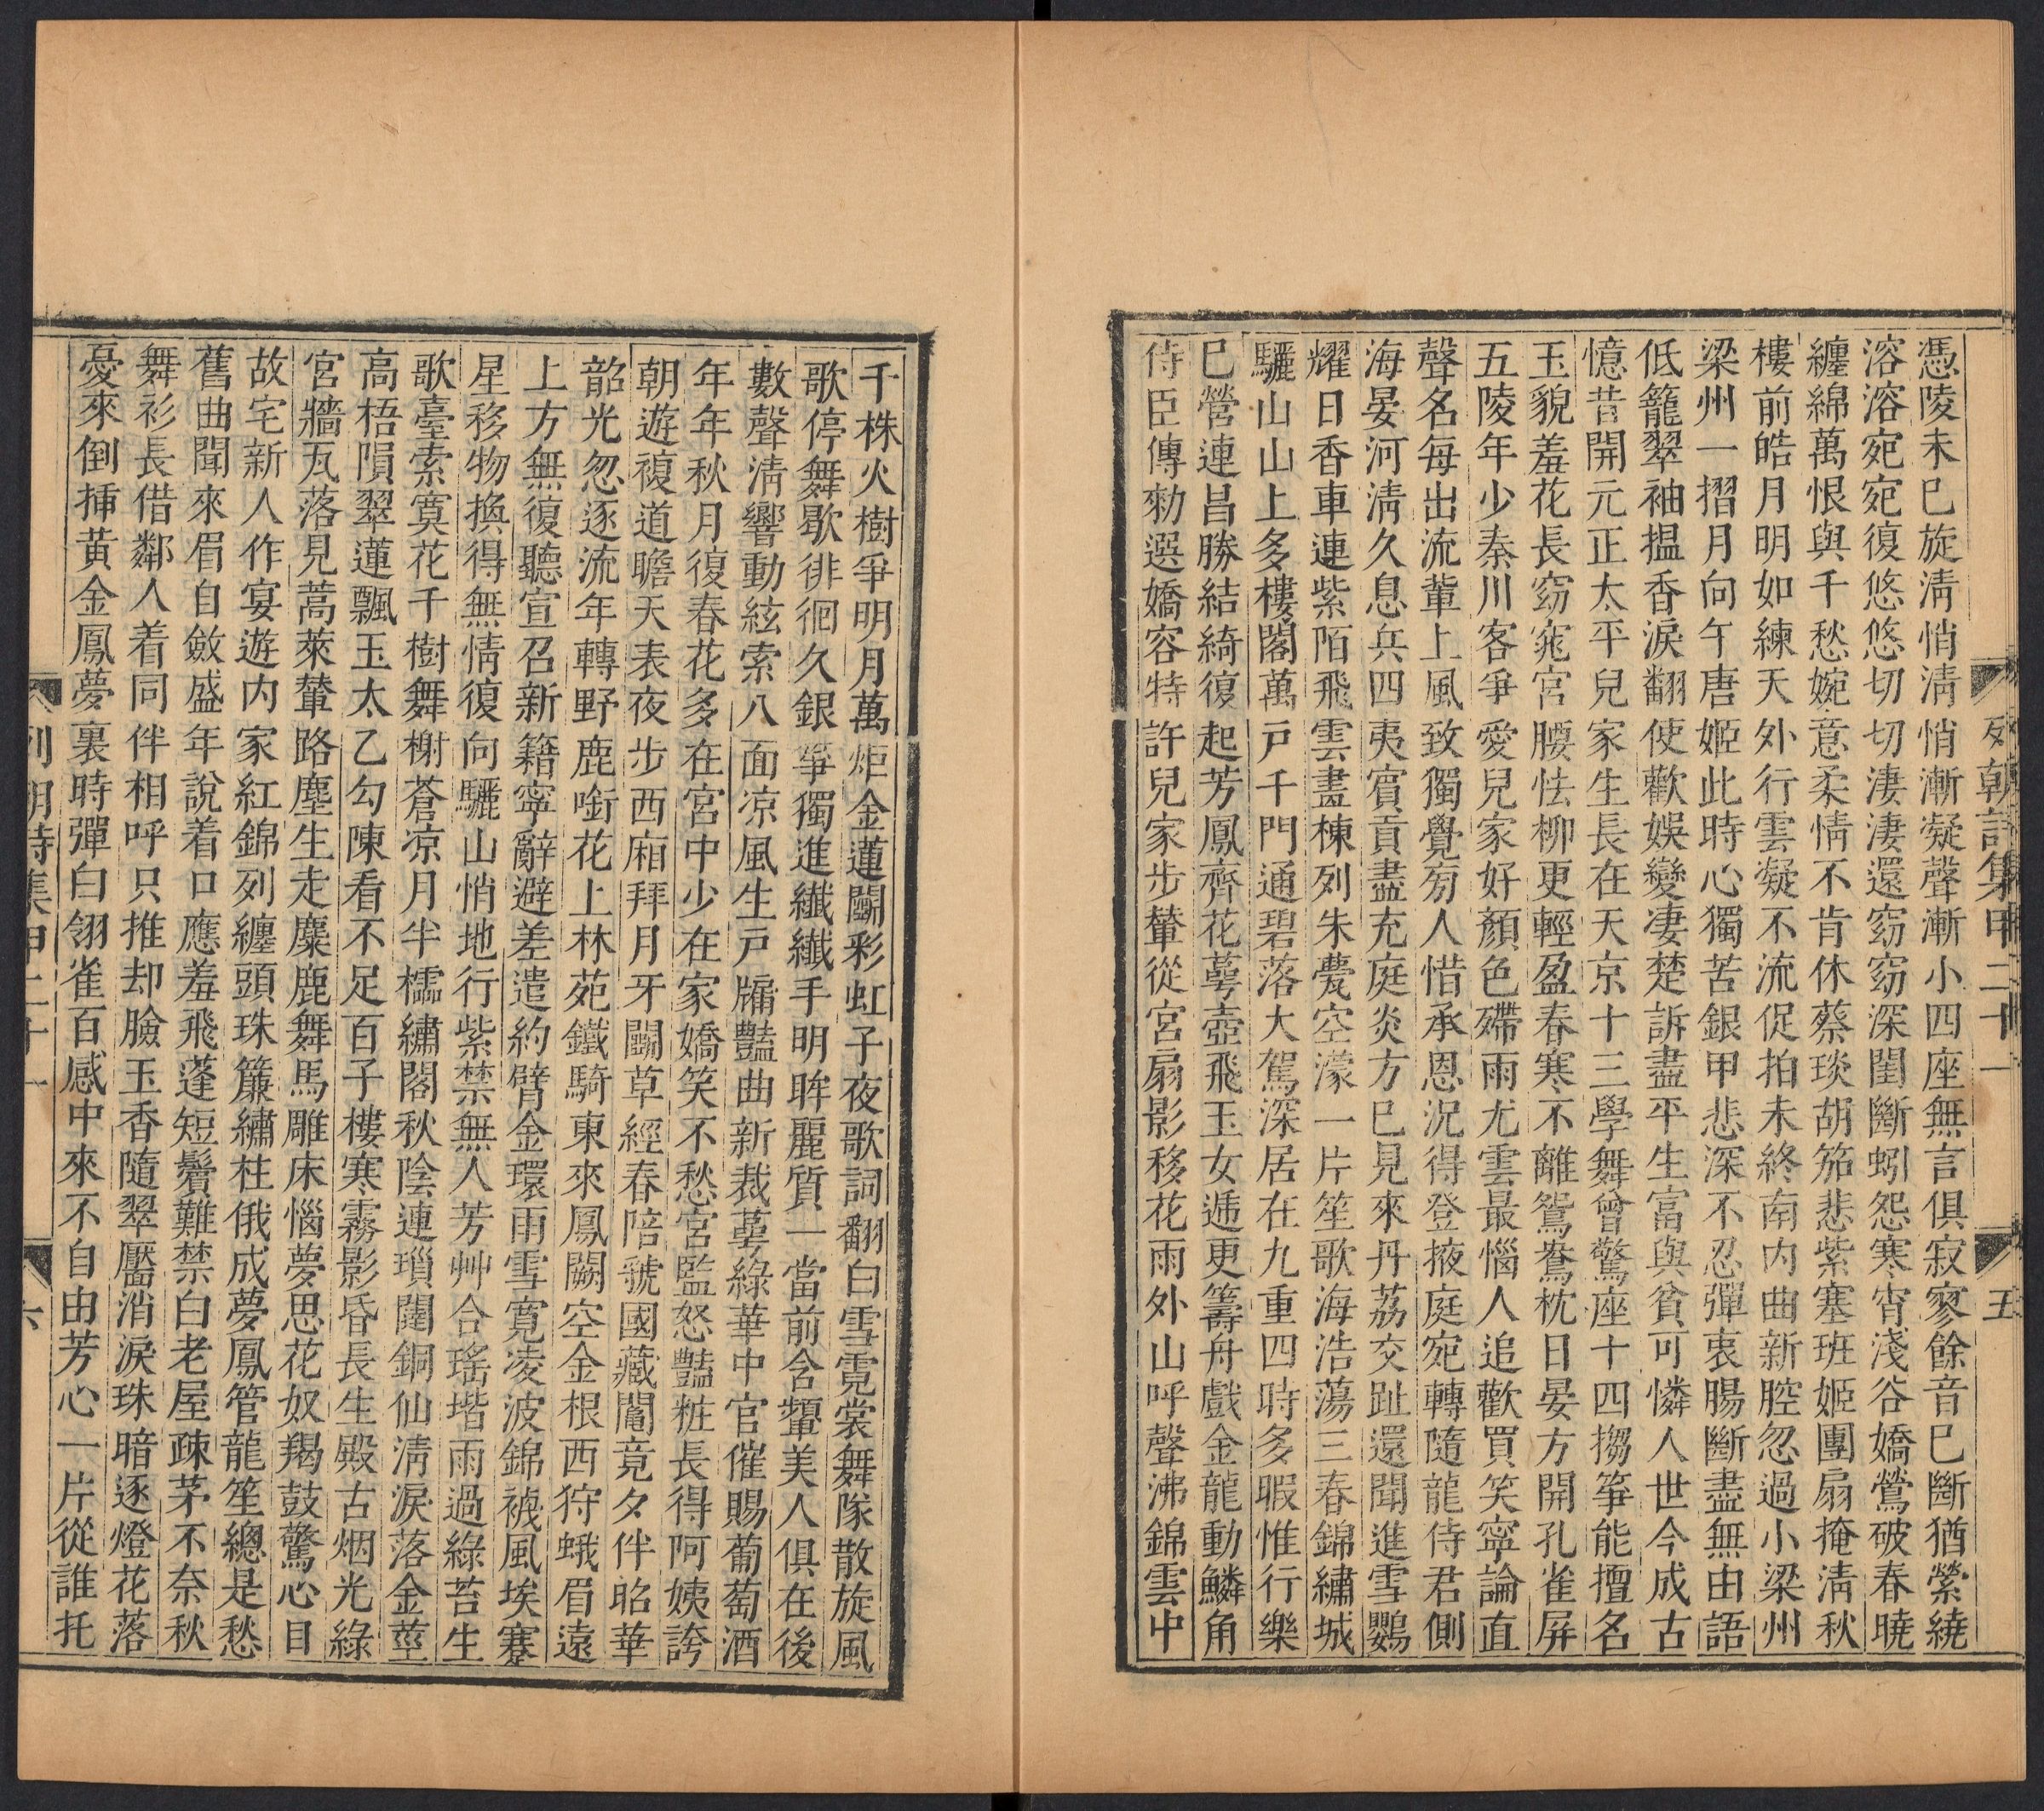 列朝詩集甲二十一 五
憑陵未已旋淸悄淸悄漸凝聲漸小四座無言俱寂寥餘音已斷猶縈繞
溶溶宛宛復悠悠切切淒淒還窈窈深閨斷蚓怨寒宵淺谷嬌鶯破春曉
纏綿萬恨與千愁婉意柔情不肯休蔡琰胡笳悲紫塞班姬團扇掩淸秋
樓前皓月明如練天外行雲凝不流促拍未終南內曲新腔忽過小梁州
梁州一摺月向午唐姬此時心獨苦銀甲悲深不忍彈衷腸斷盡無由語
低籠翠袖揾香淚翻使歡娛變凄楚訴盡平生富與貧可憐人世今成古
憶昔開元正太平兒家生長在天京十三學舞曾驚座十四搊箏能擅名
玉貌羞花長窈窕宮腰怯柳更輕盈春寒不離鴛鴦枕日晏方開孔雀屏
五陵年少秦川客爭愛兒家好顏色殢雨尤雲最惱人追歡買笑寧論直
聲名每出流輩上風致獨覺旁人惜承恩況得登掖庭宛轉隨龍侍君側
海晏河淸久息兵四夷賓貢盡充庭炎方已見來丹荔交趾還聞進雪鸚
耀日香車連紫陌飛雲畫棟列朱甍空濛一片笙歌海浩蕩三春錦繡城
驪山山上多樓閣萬戸千門通碧落大駕深居在九重四時多暇惟行樂
已營連昌勝結綺復起芳鳳齊花萼壺飛玉女遞更籌舟戲金龍動鱗角
侍臣傳勑選嬌容特許兒家步輦從宮扇影移花雨外山呼聲沸錦雲中
千株火樹爭明月萬炬金蓮鬭彩虹子夜歌詞翻白雪霓裳舞隊散旋風
歌停舞歇徘徊久銀箏獨進纖纖手明眸麗質一當前含顰美人俱在後
數聲淸響動絃索八面凉風生戸牖豔曲新裁萼綠華中官催賜葡萄酒
年年秋月復春花多在宮中少在家嬌笑不愁宮監怒豔粧長得阿姨誇
朝遊複道瞻天表夜步西廂拜月牙鬭草經春陪虢國藏鬮竟夕伴昭華
韶光忽逐流年轉野鹿啣花上林苑鐵騎東來鳳闕空金根西狩蛾眉遠
上方無復聽宣召新籍寧辭避差遣約臂金環雨雪寬凌波錦襪風埃蹇
星移物換得無情復向驪山悄地行紫禁無人芳艸合瑤堦雨過綠苔生
歌臺索寞花千樹舞榭蒼凉月半欞繡閣秋陰連瑣闥銅仙淸淚落金莖
高梧隕翠蓮飄玉太乙勾陳看不足百子樓寒霧影昏長生殿古烟光綠
宮牆瓦落見蒿萊輦路塵生走麋鹿舞馬雕床惱夢思花奴羯鼓驚心目
故宅新人作宴遊內家紅錦列纏頭珠簾繡柱俄成夢鳳管龍笙總是愁
舊曲聞來眉自斂盛年說着口應羞飛蓬短鬢難禁白老屋疎茅不奈秋
舞衫長借鄰人着同伴相呼只推却臉玉香隨翠靨消淚珠暗逐燈花落
憂來倒揷黃金鳳夢裏時彈白翎雀百感中來不自由芳心一片從誰托
列朝詩集甲二十一 六